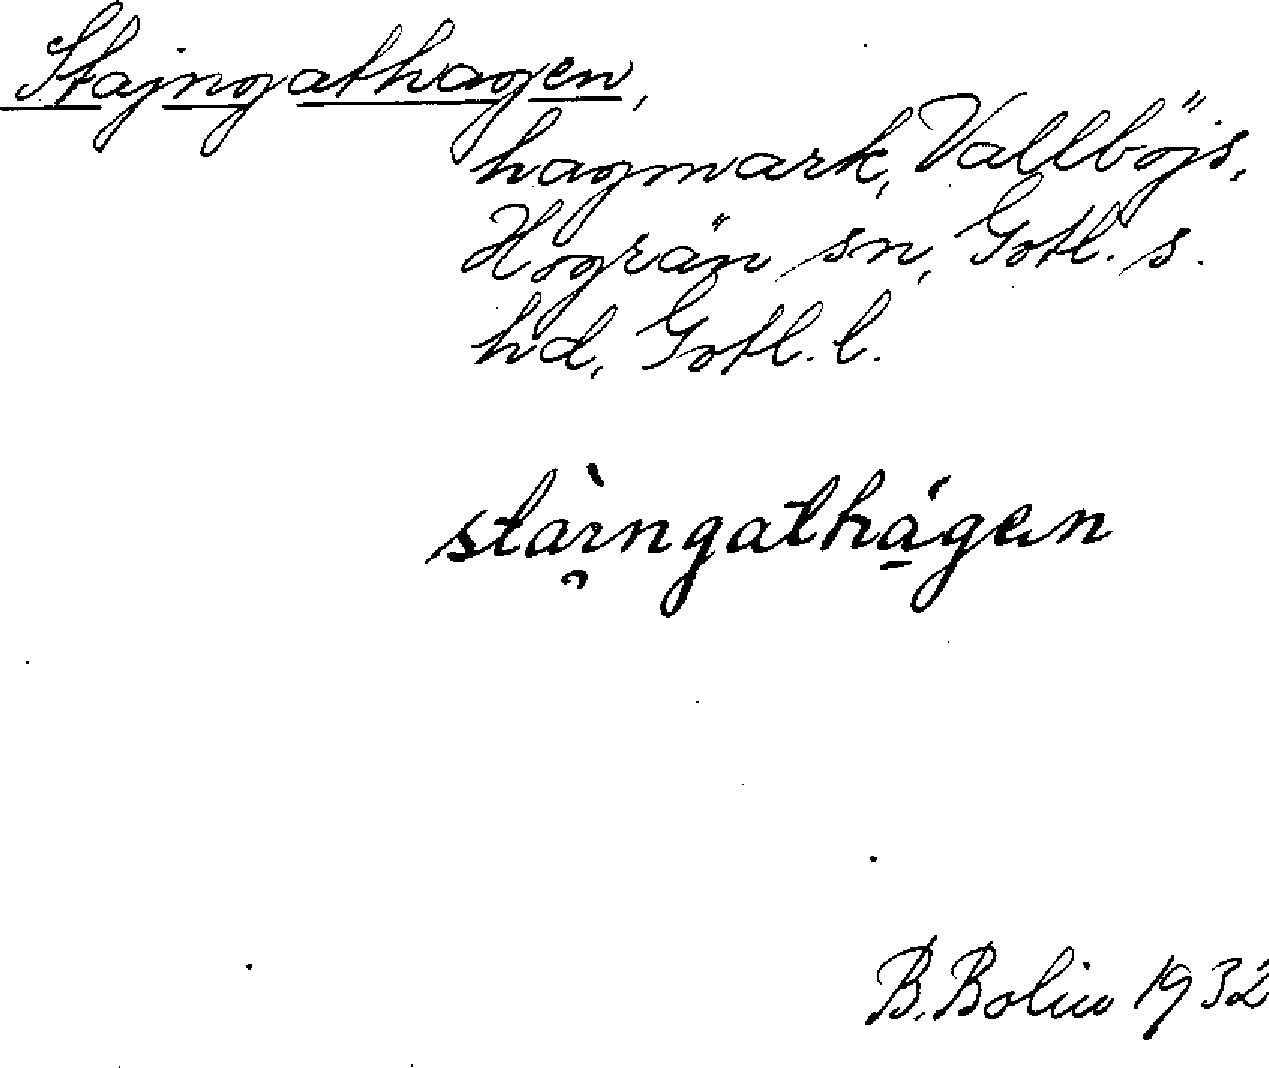 Stajngathagen,
hagmark, Vallböjs,
Hogrän sn, Gotl. s.
hd, Gotl. l.
B. Bolin 1932